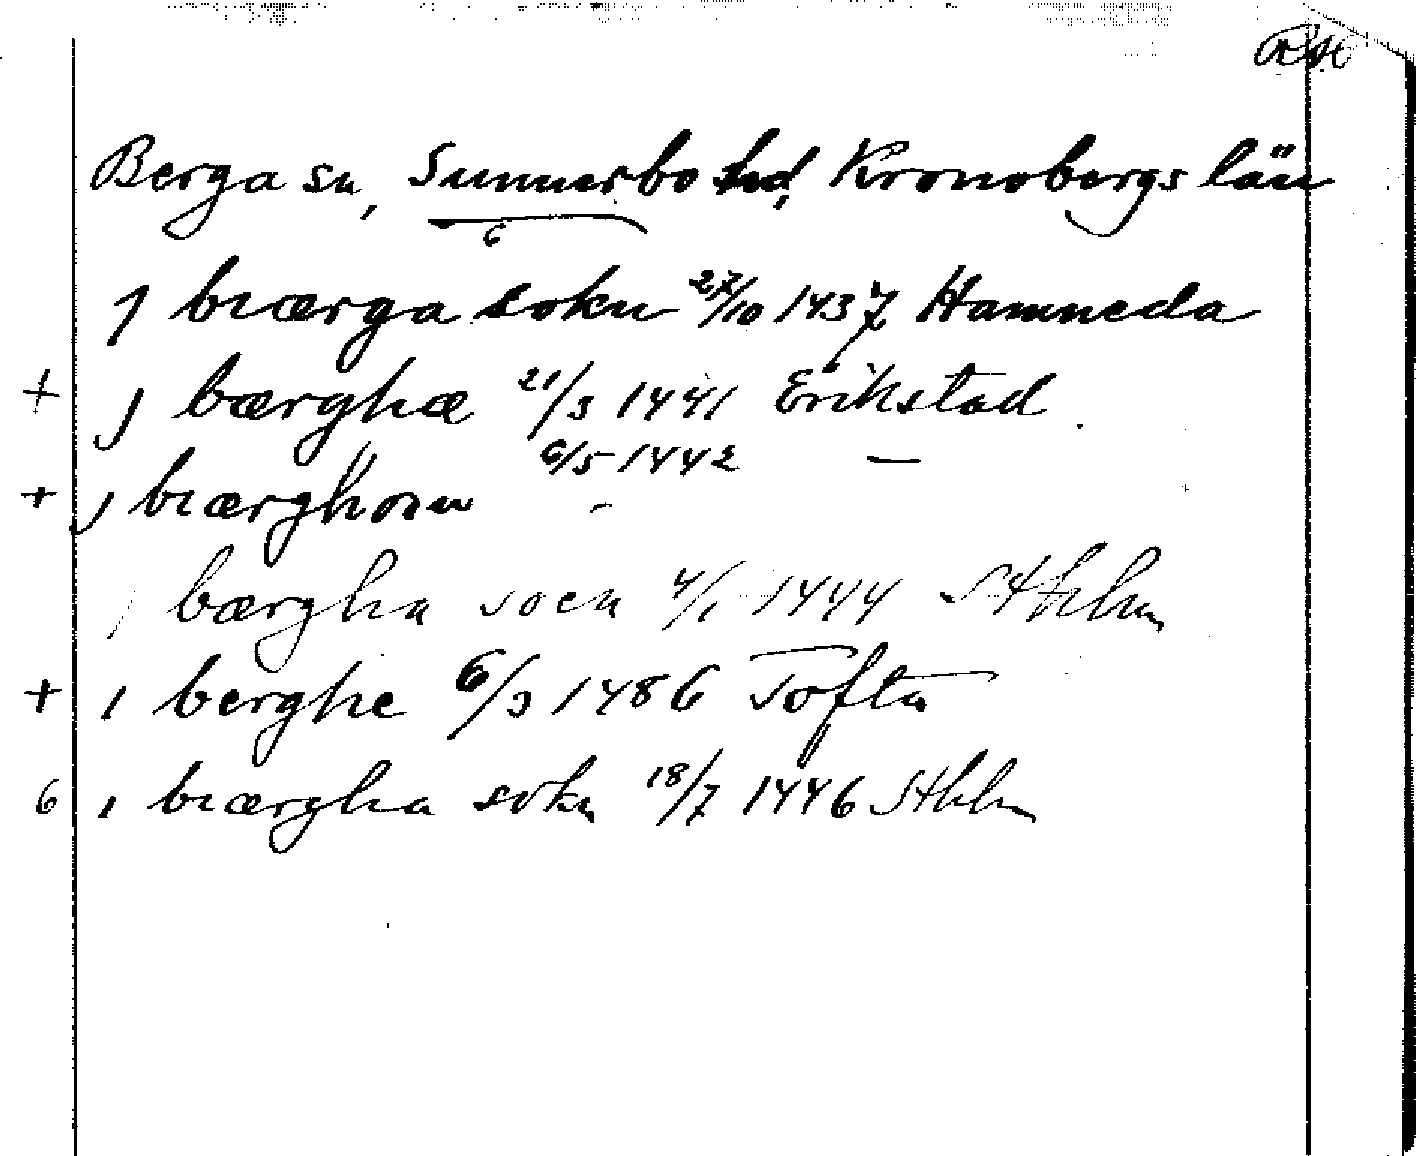 RSÖ
Berga sn, Sunnerbo hd, Kronobergs län
6
j biærga sokn 27/10 1437 Hamneda
+ j bærghæ 21/3 1441 Erikstad
6/5 1442 —
+ j biærghom -
j bærgha socn 4/1 1444 Sthlm
+ i berghe 6/3 1486 Tofta
6 i biærgha sokn 18/7 1446 Sthlm